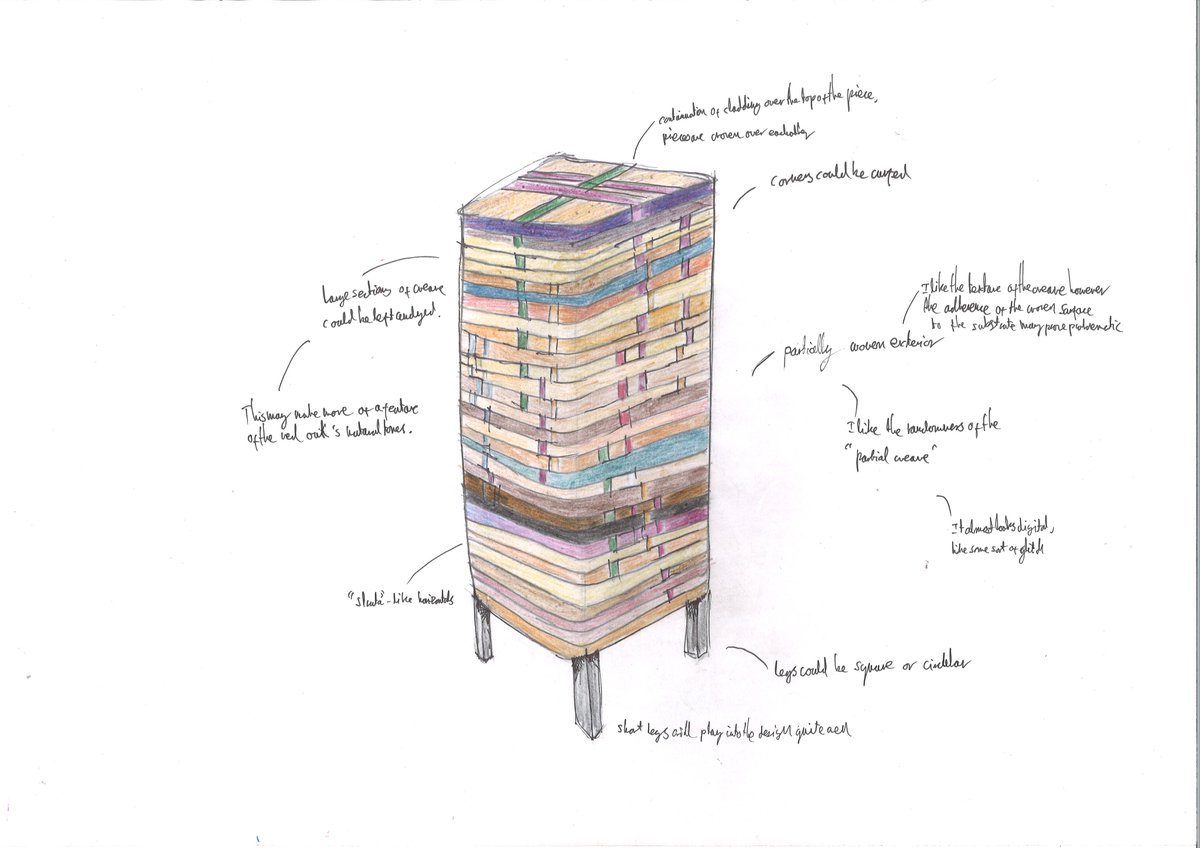 continuation of cladding over the top of the piece,
pieces are woven over eachother
corners could be curved
large sections of weave
could be left undyed.
I like the texture of the weave however
the adherence of the woven surface
to the substrate may prove problematic
partially woven exterior
This may make more of a feature
of the red oak's natural tones.
I like the randomness of the
"partial weave"
It almost looks digital,
like some sort of glitch
"strata"-like horizontals
legs could be square or circular
short legs will play into the design quite well